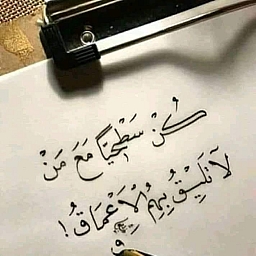 كُنْ سَطْحِيًّا مَعَ مَنْ
لَا تَلِيْقُ بِهِمُ الْأَعْمَاقُ!